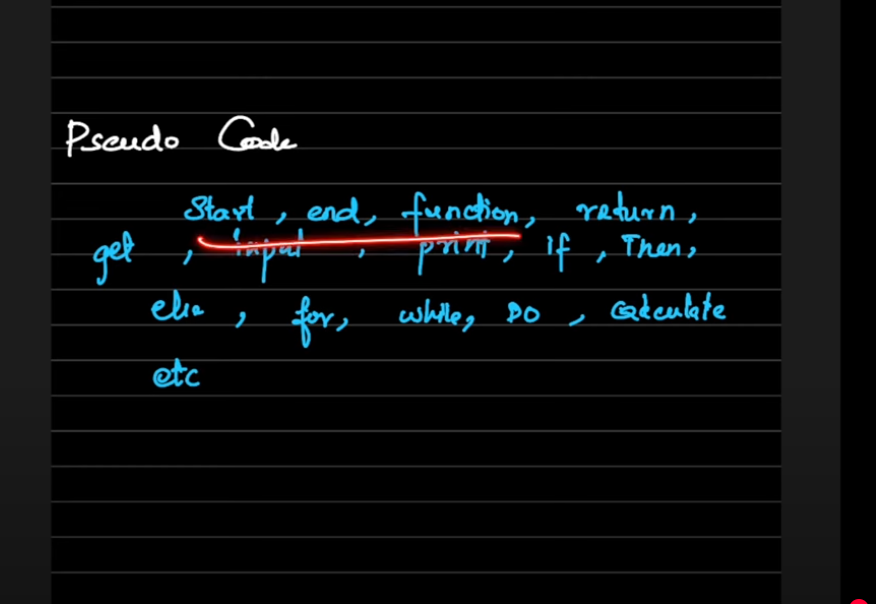 Pseudo Code
Start, end, function, return,
get, input, print, if, Then,
else, for, while, DO, Calculate
etc